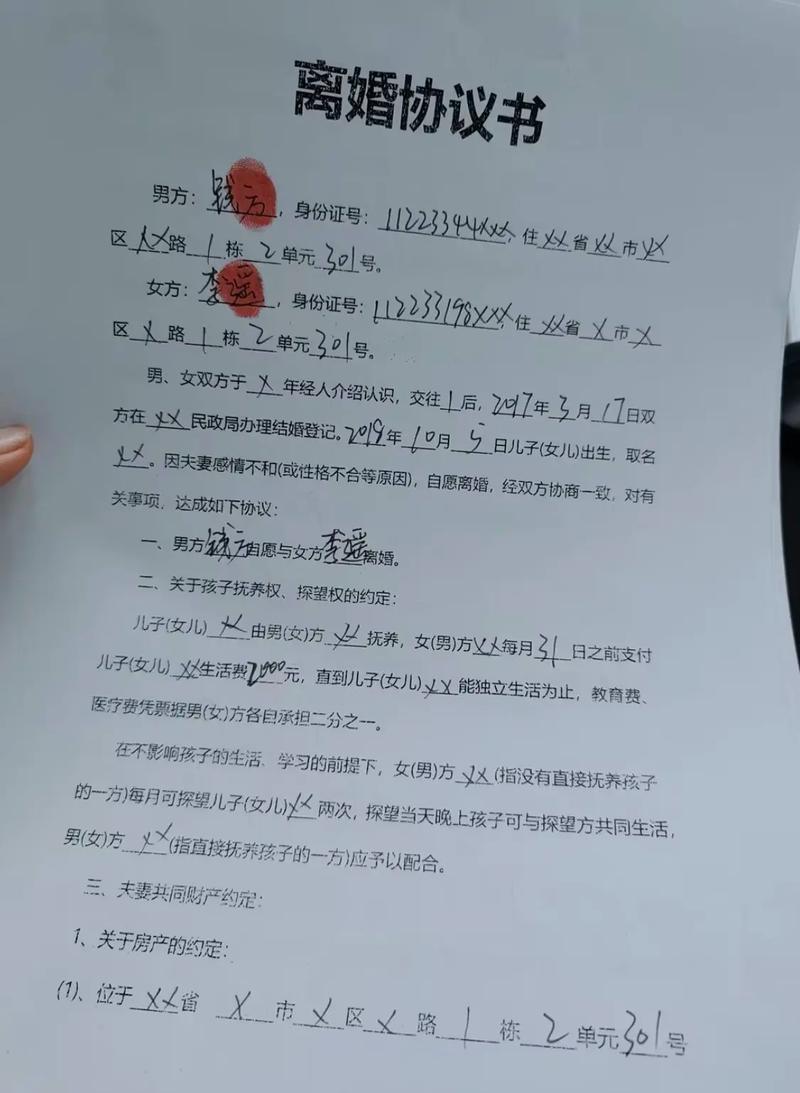 离婚协议书
男方：钱方，身份证号：11223344xxx，住xx省xx市xx
区xx路1栋2单元301号。
女方：李瑶，身份证号：112233198xxx，住xx省x市x
区x路1栋2单元301号。
男、女双方于x年经人介绍认识，交往1后，2017年3月17日双
方在xx民政局办理结婚登记。2019年10月5日儿子(女儿)出生，取名
xx。因夫妻感情不和(或性格不合等原因)，自愿离婚，经双方协商一致，对有
关事项，达成如下协议：
一、男方钱方自愿与女方李瑶离婚。
二、关于孩子抚养权、探望权的约定：
儿子(女儿)xx由男(女)方xx抚养，女(男)方xx每月31日之前支付
儿子(女儿)xx生活费2000元，直到儿子(女儿)xx能独立生活为止，教育费、
医疗费凭票据男(女)方各自承担二分之一。
在不影响孩子的生活、学习的前提下，女(男)方xx(指没有直接抚养孩子
的一方)每月可探望儿子(女儿)xx两次，探望当天晚上孩子可与探望方共同生活，
男(女)方xx(指直接抚养孩子的一方)应予以配合。
三、夫妻共同财产约定：
1、关于房产的约定：
(1)、位于xx省x市x区x路1栋2单元301号